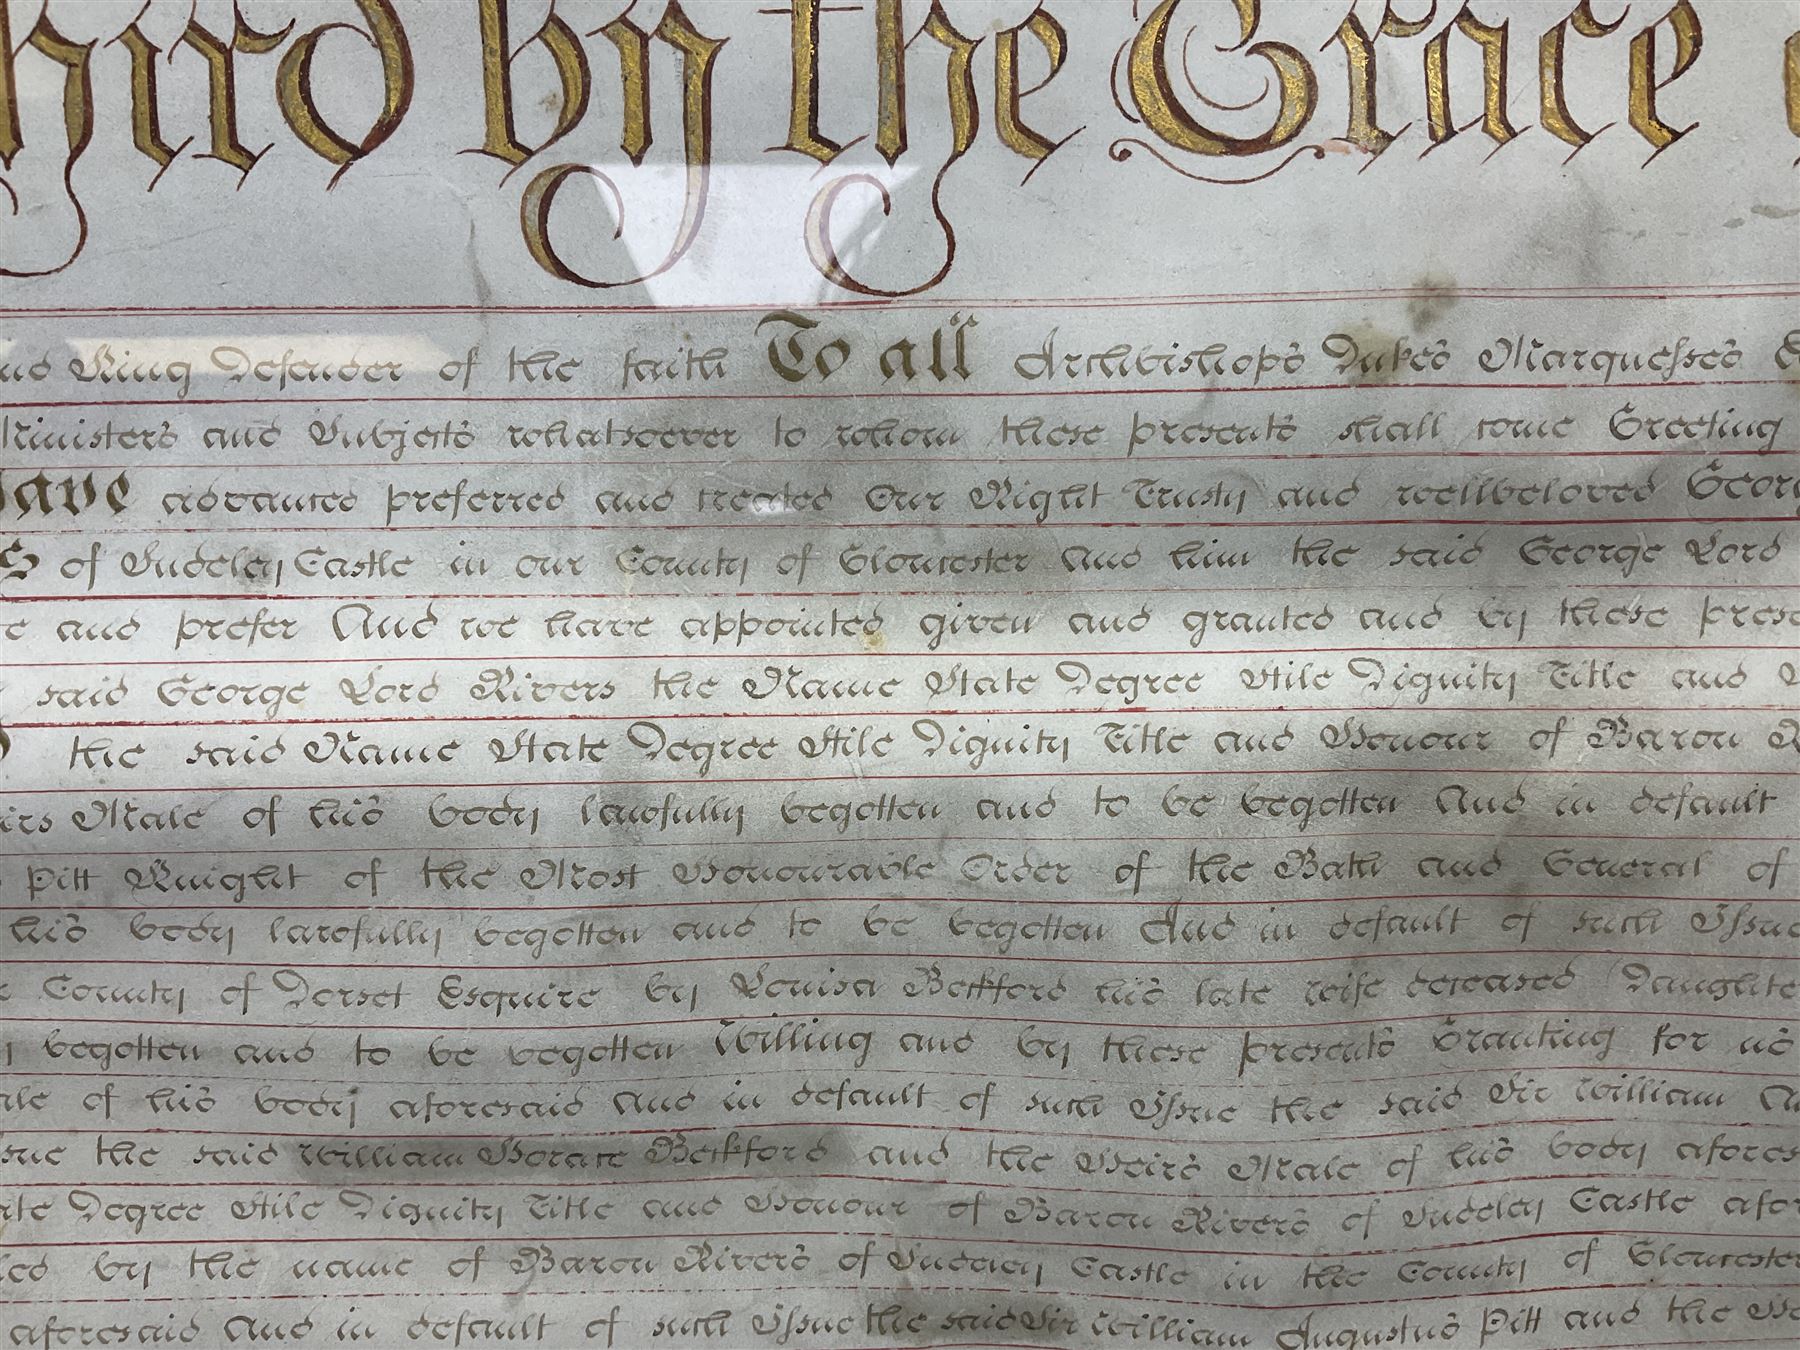 hird by the Grace
King Defender of the faith To all Archbishops Dukes Marquesses
Ministers and Subjects whatsoever to whom these presents shall come Greeting
have advanced preferred and created Our Right Trusty and wellbeloved Georg
of Sudeley Castle in our County of Gloucester and him the said George Lord
and prefer And we have appointed given and granted and by these prese
said George Lord Rivers the Name State Degree Stile Dignity Title and
the said Name State Degree Stile Dignity Title and Honour of Baron R
irs Male of his body lawfully begotten and to be begotten And in default
Pitt Knight of the Most Honourable Order of the Bath and General of
his body lawfully begotten and to be begotten And in default of such Issue
County of Dorset Esquire by Louisa Beckford his late wife deceased Daughte
begotten and to be begotten Willing and by these presents Granting for us
ale of his body aforesaid And in default of such Issue the said Sir William Au
sue the said William Horace Beckford and the Heirs Male of his body afores
ate Degree Stile Dignity Title and Honour of Baron Rivers of Sudeley Castle afor
led by the name of Baron Rivers of Sudeley Castle in the County of Gloucester
aforesaid And in default of such Issue the said Sir William Augustus Pitt and the He